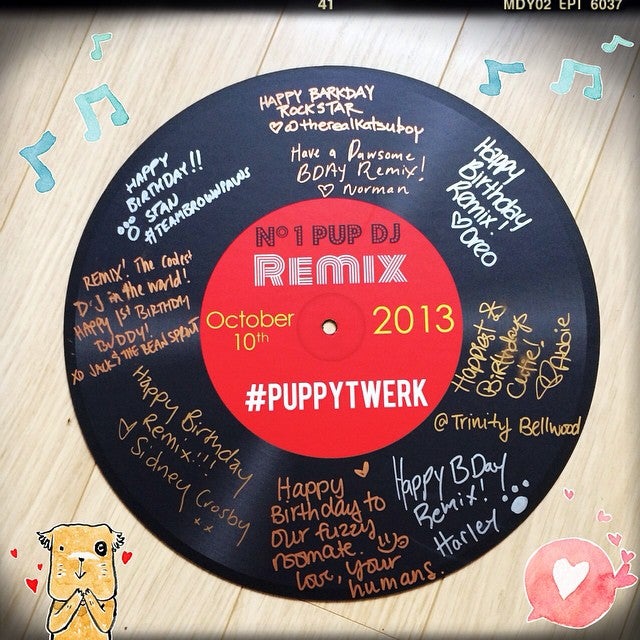 41
MDY02 EPT 6037
HAPPY BARKDAY
ROCKSTAR
♡@therealkatsuboy
Have a Pawsome
BDAY Remix!
♡ Norman
HAPPY
BIRTHDAY!!
STAN
#TEAMBROWNPAWS
Happy
Birthday
Remix!
♡Oreo
REMIX! The Coolest
DJ in the world!
HAPPY 1ST BIRTHDAY
BUDDY!
XO JACK & THE BEAN SPROUT
Nº 1 PUP DJ
REMIX
October
10th
2013
#PUPPYTWERK
Happiest
Birthdays
Cutie!
Abbie
@Trinity Bellwood
Happy Birthday
Remix!!!
♡ Sidney Crosby
xx
Happy
Birthday to
our fuzzy
roomate.
love, your
humans.
Happy BDay
Remix!
Harley